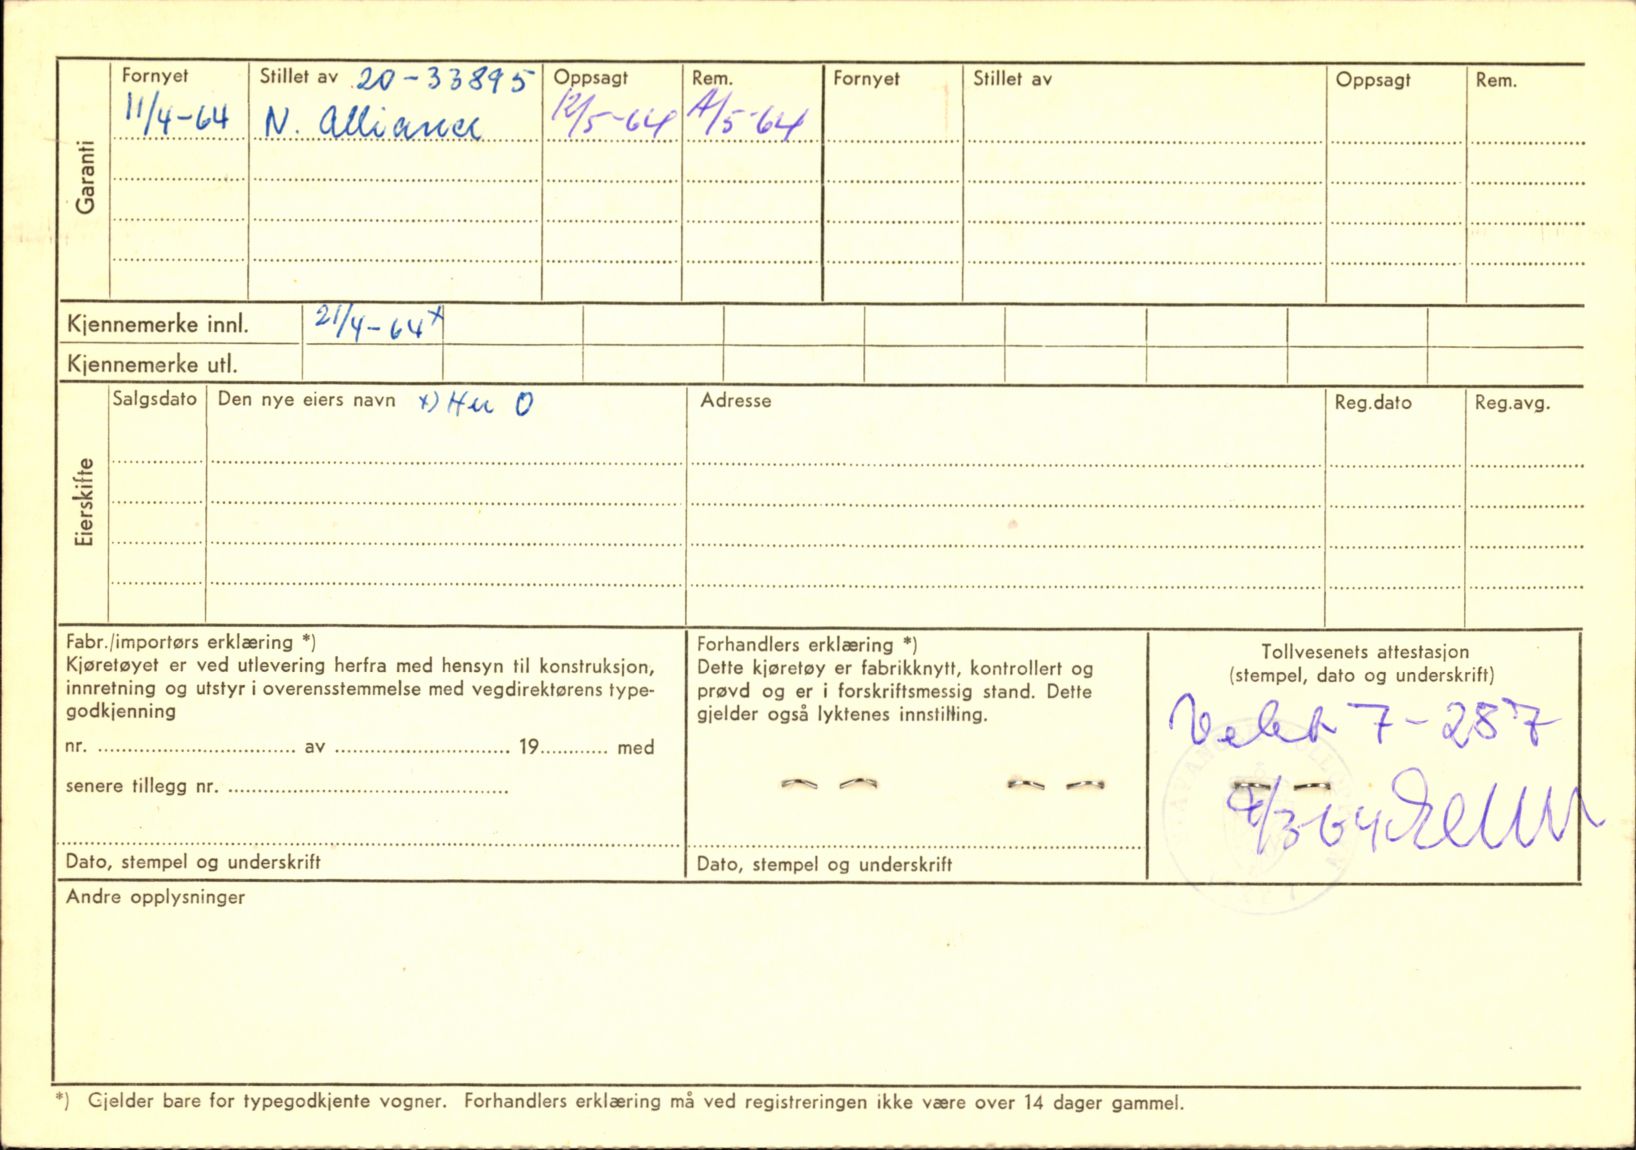 Garanti
Fornyet Stillet av 20-33895 Oppsagt Rem. Fornyet Stillet av Oppsagt Rem.
11/4-64 N. Alliance 12/5-64 /5-64
Kjennemerke innl. 21/4-64 x
Kjennemerke utl.
Eierskifte
Salgsdato Den nye eiers navn x) O Adresse Reg.dato Reg.avg.
Fabr./importørs erklæring *)
Kjøretøyet er ved utlevering herfra med hensyn til konstruksjon,
innretning og utstyr i overensstemmelse med vegdirektørens type-
godkjenning
nr. .................................. av .............................. 19............ med
senere tillegg nr. ................................................
Dato, stempel og underskrift
Forhandlers erklæring *)
Dette kjøretøy er fabrikknytt, kontrollert og
prøvd og er i forskriftsmessig stand. Dette
gjelder også lyktenes innstilling.
Dato, stempel og underskrift
Tollvesenets attestasjon
(stempel, dato og underskrift)
7-287
/3-64
Andre opplysninger
*) Gjelder bare for typegodkjente vogner. Forhandlers erklæring må ved registreringen ikke være over 14 dager gammel.